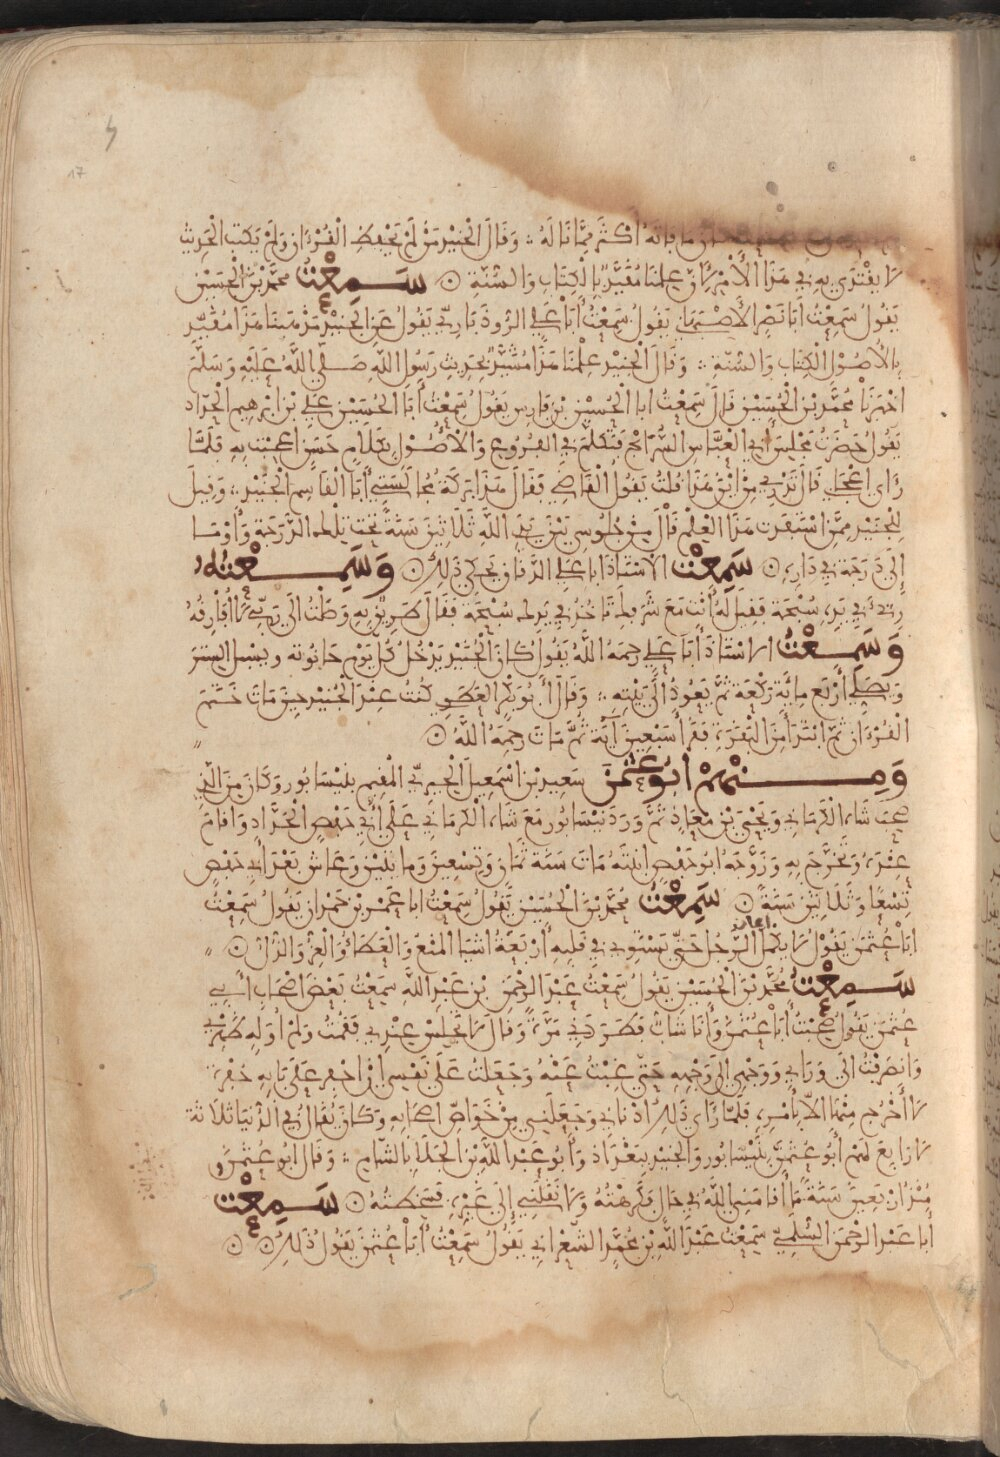 ما فاته أكثر مما ناله ؞ وقال الجنيد من لم يحفظ القرءان ولم يكتب الحديث
لا يقتدى به في هذا الأمر لأن علمنا مقيد بالكتاب والسنة ○ سمعت محمد بن الحسين
يقول سمعت أبا نصر الأصبهاني يقول سمعت أبا علي الروذباري يقول عن الجنيد مذهبنا هذا مقيد
بالأصول الكتاب والسنة ؞ وقال الجنيد علمنا هذا مشيد بحديث رسول الله صلى الله عليه وسلم
اخبرنا محمد بن الحسين قال سمعت ابا الحسين بن فارس يقول سمعت أبا الحسين علي بن ابرهيم الحداد
يقول حضرت مجلس أبي العباس ابن سريج فتكلم في الفروع والأصول بكلام حسن اعجبت به فلما
رأى اعجابي قال تدري من اين هذا قلت يقول القاضي فقال هذا بركة مجالستي أبا القاسم الجنيد ؞ وقيل
للجنيد ممن استفدت هذا العلم قال من جلوسي بين يدي الله ثلاثين سنة تحت تلك الدرجة وأومـا
إلى درجة في داره ○ سمعت الاستاذ ابا علي الدقاق يحكي ذلك ○ وسمعته
رئي في يده سبحة فقيل له أنت مع شرفك تاخذ في يدك سبحة فقال طريق به وصلت الى ربي لا أفارقه
وسمعت الاستاذ أبا علي رحمه الله يقول كان الجنيد يدخل كل يوم حانوته ويسبل الستر
ويصلي أربع مائة ركعة ثم يعود الى بيته ؞ وقال أبو بكر العطوي كنت عند الجنيد حين مات ختم
القرءان ثم ابتدأ من البقرة فقرأ سبعين آية ثم مات رحمه الله ○
ومنهم أبو عثمن سعيد بن اسمعيل الحيري المقيم بنيسابور وكان من الري
صحب شاه الكرماني ويحيى بن معاذ ثم ورد نيسابور مع شاه الكرماني على أبي حفص الحداد واقام
عنده وتخرج به وزوجه ابو حفص ابنته مات سنة ثمان وتسعين وما يتين وعاش بعد أبي حفص
تسعا وثلاثين سنة ○ سمعت محمد بن الحسين يقول سمعت ابا عمرو بن حمدان يقول سمعت
أبا عثمن يقول لا يكمل إيمان الرجل حتى يستوي في قلبه أربعة اشيا المنع والعطاء والعز والذل ○
سمعت محمد بن الحسين يقول سمعت عبد الرحمن بن عبد الله سمعت بعض اصحاب أبي
عثمن يقول صحبت أبا عثمن وأنا شاب فطردني مرة وقال لا تجلس عندي فقمت ولم أوله ظهري
وانصرفت الى ورائي ووجهي إلى وجهه حتى غبت عنه وجعلت على نفسي أن احفر على بابه حفرة
لا أخرج منها الا بأمره فلما رأى ذلك أدناني وجعلني من خواص اصحابه وكان يقال في الدنيا ثلاثة
لا رابع لهم أبو عثمن بنيسابور والجنيد ببغداذ وأبو عبد الله بن الجلا بالشام ؞ وقال ابو عثمن
منذ أربعين سنة ما أقامني الله في حال فكرهته ولا نقلني إلى غيره فسخطته ○ سمعت
أبا عبد الرحمن السلمي سمعت عبد الله بن محمد الشعراني يقول سمعت أبا عثمن يقول ذلك ○